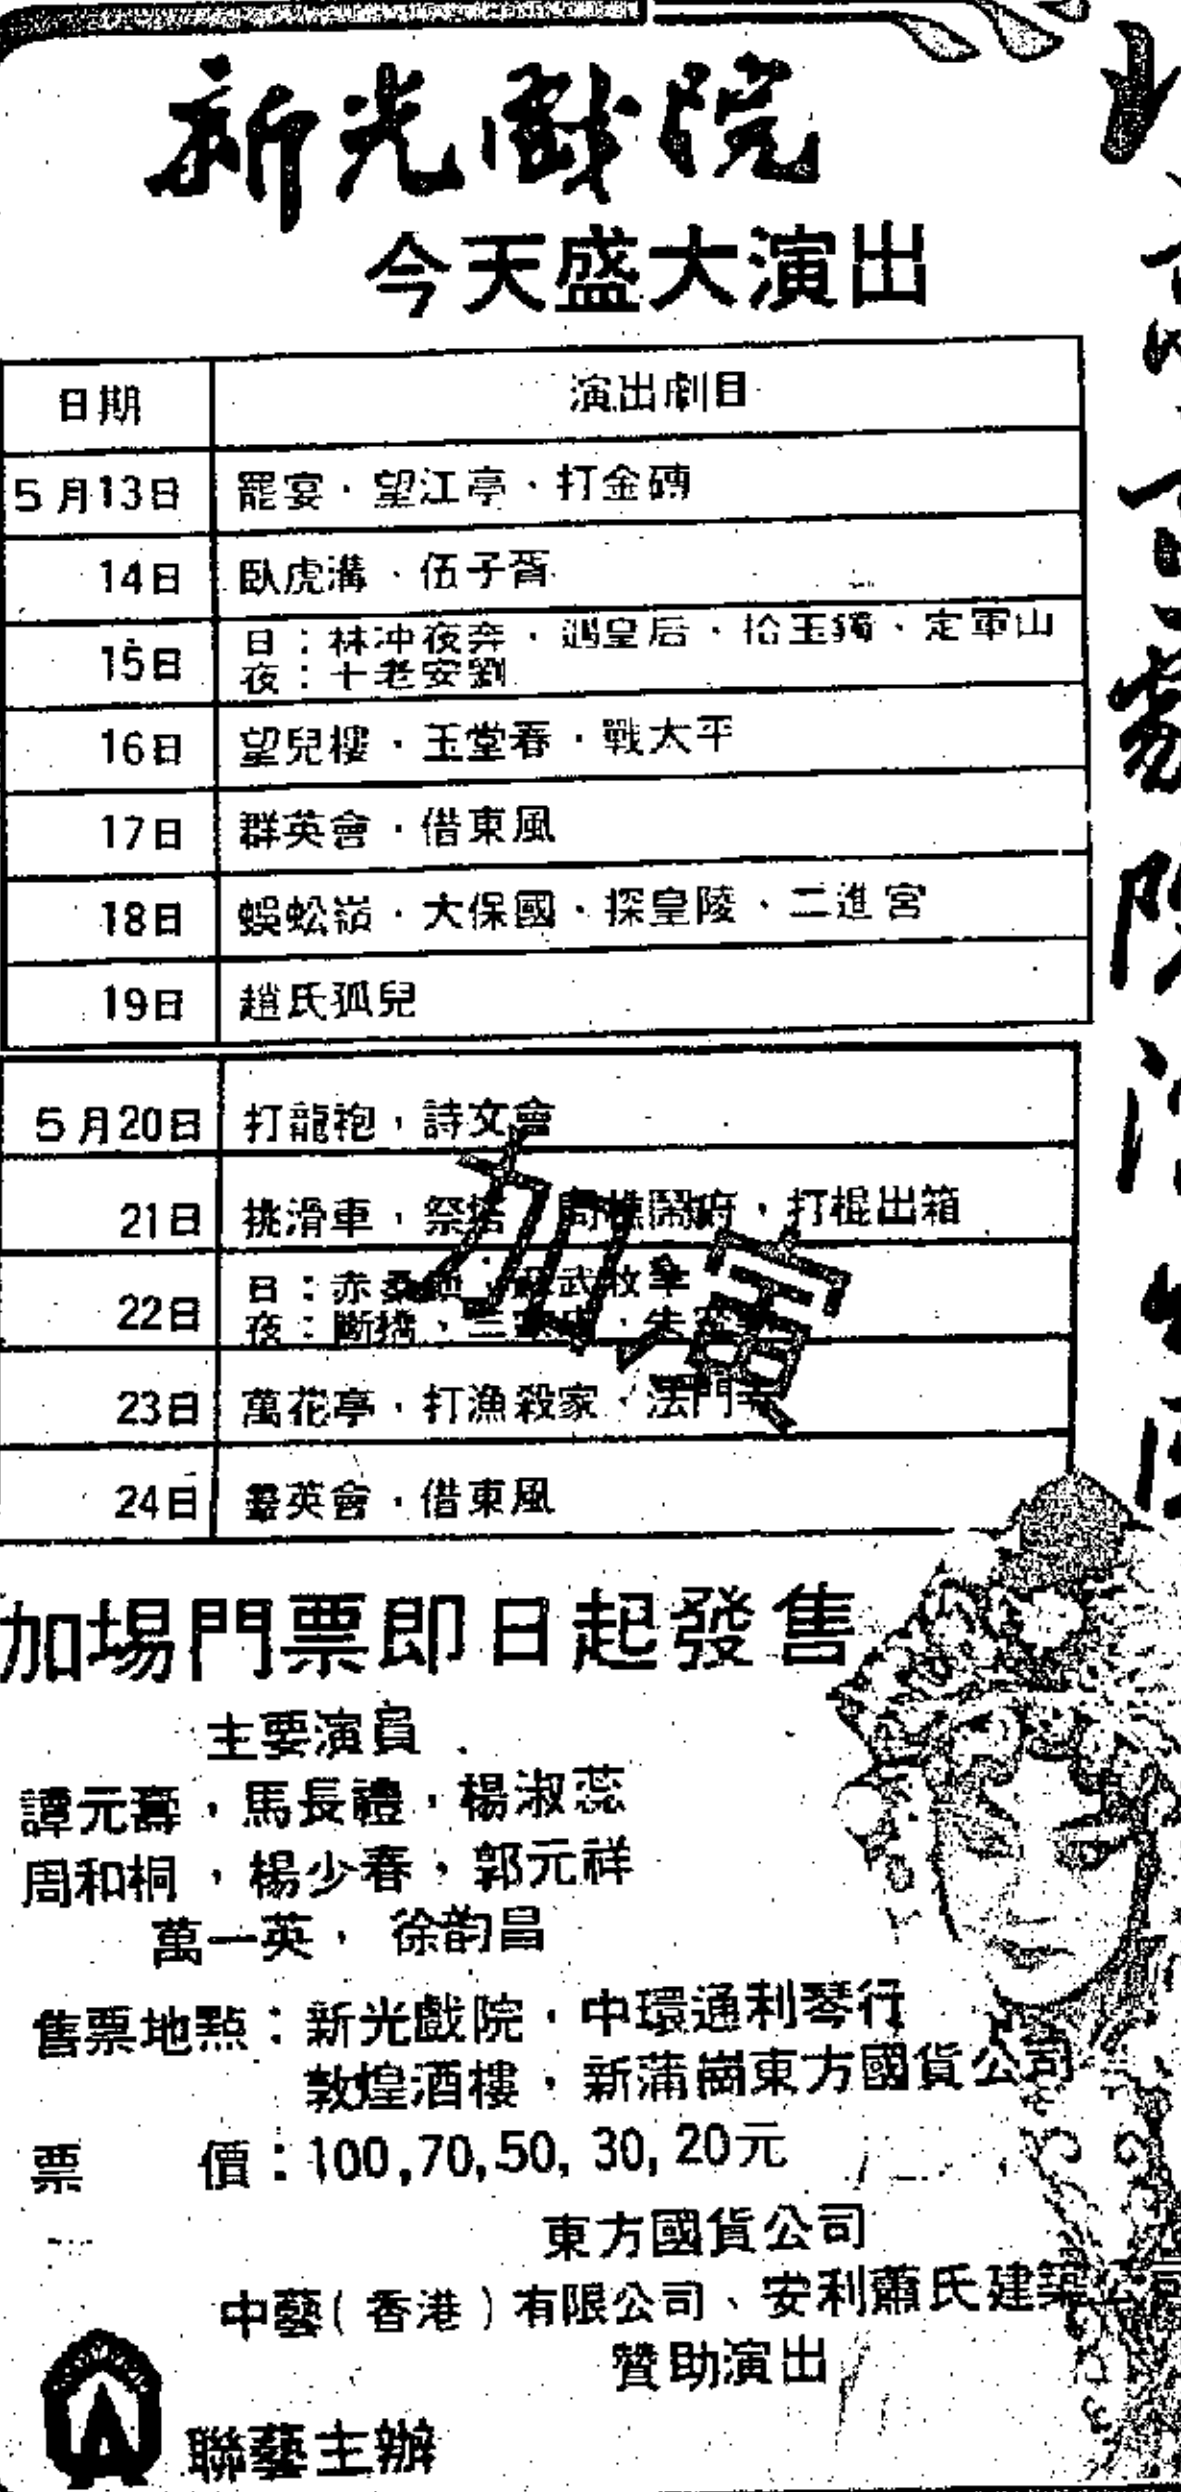 新光戲院
今天盛大演出
日期 演出劇目
5月13日 罷宴・望江亭、打金磚
14日 臥虎溝、伍子胥
15日 日：林冲夜奔・遇皇后・拾玉鐲、定軍山
夜：十老安劉
16日 望兒樓・玉堂春・戰太平
17日 群英會・借東風
18日 蜈蚣嶺・大保國、探皇陵、二進宮
19日 趙氏孤兒
5月20日 打龍袍，詩文會
21日 挑滑車，祭塔 問樵鬧府，打棍出箱
22日 日：赤桑 武牧羊
夜：斷橋、三
23日 萬花亭，打漁殺家、法門寺
24日 羣英會・借東風
加場
加場門票即日起發售
主要演員
譚元壽，馬長禮，楊淑蕊
周和桐，楊少春，郭元祥
萬一英，徐韵昌
售票地點：新光戲院，中環通利琴行
敦煌酒樓，新蒲崗東方國貨公司
票 價：100,70,50,30,20元
東方國貨公司
中藝(香港)有限公司、安利蕭氏建築公司
贊助演出
聯藝主辦